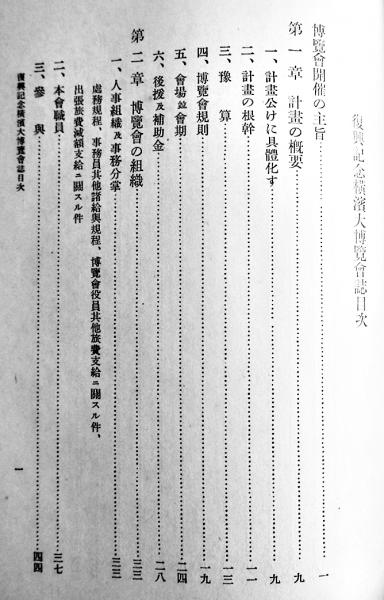 復興記念橫濱大博覽會誌目次
博覽會開催の主旨…………一
第一章 計畫の概要…………九
一、計畫公けに具體化す…………九
二、計畫の根幹…………一一
三、豫算…………一三
四、博覽會規則…………一九
五、會場並會期…………二四
六、後援及補助金…………二八
第二章 博覽會の組織…………三三
一、人事組織及事務分掌…………三三
處務規程、事務員其他諸給與規程、博覽會役員其他旅費支給ニ關スル件、
出張旅費減額支給ニ關スル件
二、本會職員…………三七
三、參與…………四四
復興記念橫濱大博覽會誌目次
一